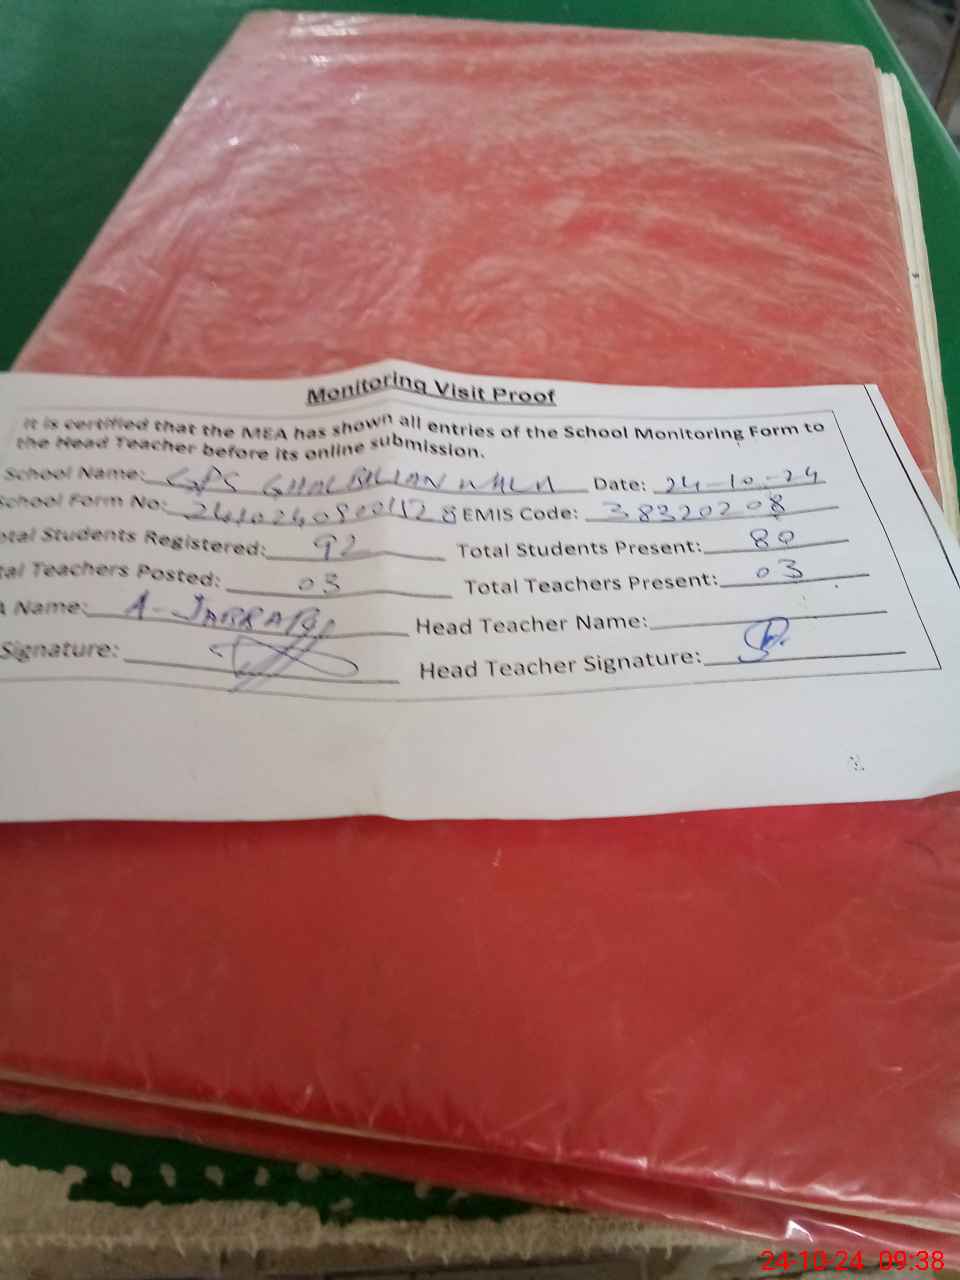 Monitoring Visit Proof
It is certified that the MEA has shown all entries of the School Monitoring Form to
the Head Teacher before its online submission.
School Name: GPS Date: 24-10-24
School Form No: EMIS Code: 38320208
tal Students Registered: 92 Total Students Present: 80
tal Teachers Posted: 03 Total Teachers Present: 03
A Name: A-JABBAR Head Teacher Name:
Signature: Head Teacher Signature:
24-10-24 09:38